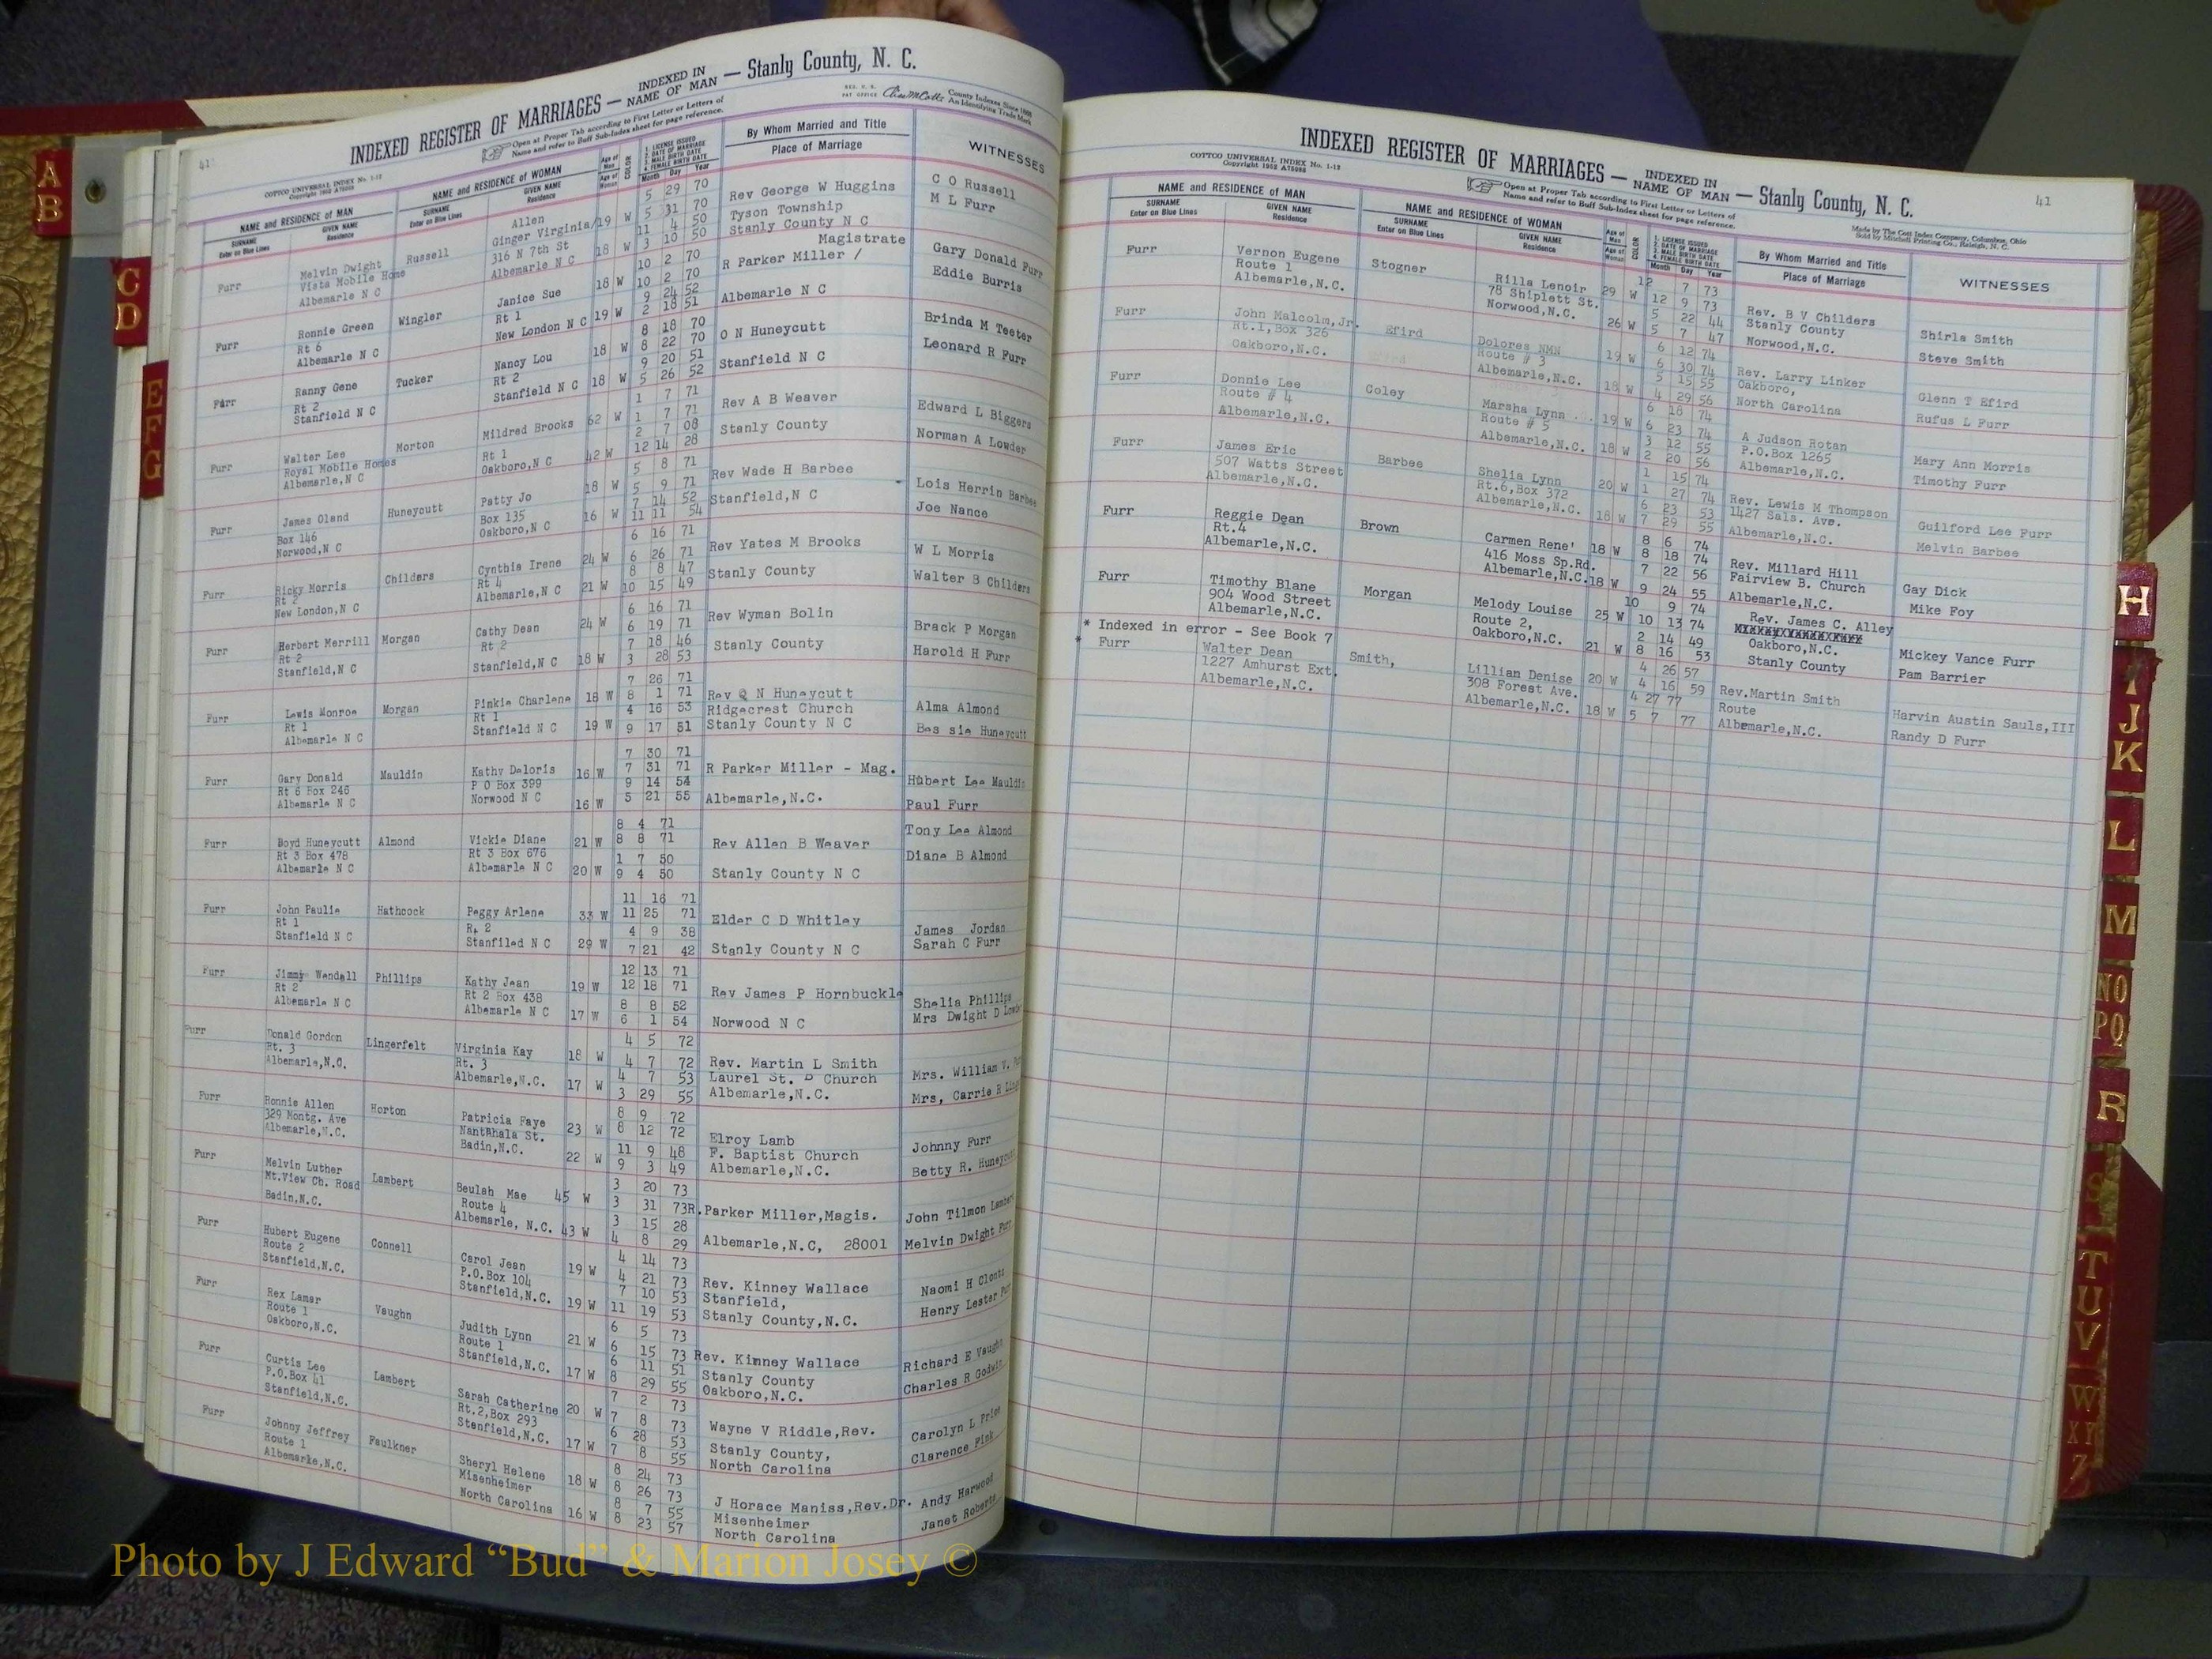 41
INDEXED REGISTER OF MARRIAGES — INDEXED IN NAME OF MAN — Stanly County, N. C.
COTTCO UNIVERSAL INDEX No. 1-12
Open at Proper Tab according to First Letter or Letters of
Name and refer to Buff Sub-Index sheet for page reference.
County Indexes Since 1888
An Identifying Trade Mark
NAME and RESIDENCE OF MAN
SURNAME Enter on Blue Lines
GIVEN NAME Residence
NAME and RESIDENCE OF WOMAN
SURNAME Enter on Blue Lines
GIVEN NAME Residence
Age of Man
Age of Woman
COLOR
1. LICENSE ISSUED
2. DATE OF MARRIAGE
3. MALE BIRTH DATE
4. FEMALE BIRTH DATE
Month Day Year
By Whom Married and Title
Place of Marriage
WITNESSES
Furr Melvin Dwight Russell Allen 5 29 70 Rev George W Huggins C O Russell
Vista Mobile Home Ginger Virginia/19 W 5 31 70 Tyson Township M L Furr
Albemarle N C 316 N 7th St 11 4 50 Stanly County N C
Albemarle N C 18 W 3 10 50
Furr Ronnie Green Wingler Janice Sue 18 W 10 2 70 Magistrate Gary Donald Furr
Rt 6 Rt 1 10 2 70 R Parker Miller / Eddie Burris
Albemarle N C New London N C 19 W 9 24 52 Albemarle N C
2 18 51
Furr Ranny Gene Tucker Nancy Lou 18 W 8 18 70 O N Huneycutt Brinda M Teeter
Rt 2 Rt 2 8 22 70 Leonard R Furr
Stanfield N C Stanfield N C 18 W 9 20 51 Stanfield N C
5 26 52
Furr Walter Lee Morton Mildred Brooks 62 W 1 7 71 Rev A B Weaver Edward L Biggers
Royal Mobile Homes Rt 1 1 7 71 Stanly County Norman A Lowder
Albemarle,N C Oakboro,N C 42 W 2 7 08
12 14 28
Furr James Oland Huneycutt Patty Jo 18 W 5 8 71 Rev Wade H Barbee Lois Herrin Barbee
Box 146 Box 135 5 9 71 Stanfield,N C Joe Nance
Norwood,N C Oakboro,N C 16 W 7 14 52
11 11 54
Furr Ricky Morris Childers Cynthia Irene 24 W 6 16 71 Rev Yates M Brooks W L Morris
Rt 2 Rt 4 6 26 71 Stanly County Walter B Childers
New London,N C Albemarle,N C 21 W 8 8 47
10 15 49
Furr Herbert Merrill Morgan Cathy Dean 24 W 6 16 71 Rev Wyman Bolin Brack P Morgan
Rt 2 Rt 2 6 19 71 Stanly County Harold H Furr
Stanfield,N C Stanfield,N C 18 W 7 18 46
3 28 53
Furr Lewis Monroe Morgan Pinkie Charlene 18 W 7 26 71 Rev Q N Huneycutt Alma Almond
Rt 1 Rt 1 8 1 71 Ridgecrest Church Bes sie Huneycutt
Albemarle N C Stanfield N C 19 W 4 16 53 Stanly County N C
9 17 51
Furr Gary Donald Mauldin Kathy Deloris 16 W 7 30 71 R Parker Miller - Mag. Hubert Lee Mauldin
Rt 6 Box 246 P O Box 399 7 31 71 Paul Furr
Albemarle N C Norwood N C 16 W 9 14 54 Albemarle,N.C.
5 21 55
Furr Boyd Huneycutt Almond Vickie Diane 21 W 8 4 71 Rev Allen B Weaver Tony Lee Almond
Rt 3 Box 478 Rt 3 Box 676 8 8 71 Diane B Almond
Albemarle N C Albemarle N C 20 W 1 7 50 Stanly County N C
9 4 50
Furr John Paulie Hathcock Peggy Arlene 33 W 11 16 71 Elder C D Whitley James Jordan
Rt 1 Rt 2 11 25 71 Sarah C Furr
Stanfield N C Stanfiled N C 29 W 4 9 38 Stanly County N C
7 21 42
Furr Jimmy Wendall Phillips Kathy Jean 19 W 12 13 71 Rev James P Hornbuckle Shelia Phillips
Rt 2 Rt 2 Box 438 12 18 71 Mrs Dwight D Lowder
Albemarle N C Albemarle N C 17 W 8 8 52 Norwood N C
6 1 54
Furr Donald Gordon Lingerfelt Virginia Kay 18 W 4 5 72 Rev. Martin L Smith Mrs. William V.
Rt. 3 Rt. 3 4 7 72 Laurel St. B Church Mrs, Carrie R
Albemarle,N.C. Albemarle,N.C. 17 W 4 7 53 Albemarle,N.C.
3 29 55
Furr Ronnie Allen Horton Patricia Faye 23 W 8 9 72 Elroy Lamb Johnny Furr
329 Montg. Ave Nantahala St. 8 12 72 F. Baptist Church Betty R. Huneycutt
Albemarle,N.C. Badin,N.C. 22 W 11 9 48 Albemarle,N.C.
9 3 49
Furr Melvin Luther Lambert Beulah Mae 45 W 3 20 73 R.Parker Miller,Magis. John Tilmon Lambert
Mt.View Ch. Road Route 4 3 31 73 Melvin Dwight Furr
Badin,N.C. Albemarle, N.C. 43 W 3 15 28 Albemarle,N.C, 28001
4 8 29
Furr Hubert Eugene Connell Carol Jean 19 W 4 14 73 Rev. Kinney Wallace Naomi H Clontz
Route 2 P.O.Box 104 4 21 73 Stanfield, Henry Lester
Stanfield,N.C. Stanfield,N.C. 19 W 7 10 53 Stanly County,N.C.
11 19 53
Furr Rex Lamar Vaughn Judith Lynn 21 W 6 5 73 Rev. Kinney Wallace Richard E Vaughn
Route 1 Route 1 6 15 73 Stanly County Charles R Godwin
Oakboro,N.C. Stanfield,N.C. 17 W 6 11 51 Oakboro,N.C.
8 29 55
Furr Curtis Lee Lambert Sarah Catherine 20 W 7 2 73 Wayne V Riddle,Rev. Carolyn L Price
P.O.Box 41 Rt.2,Box 293 7 8 73 Stanly County, Clarence Fink
Stanfield,N.C. Stanfield,N.C. 17 W 6 28 53 North Carolina
7 8 55
Furr Johnny Jeffrey Faulkner Sheryl Helene 18 W 8 24 73 J Horace Maniss,Rev.Dr. Andy Harwood
Route 1 Misenheimer 8 26 73 Misenheimer Janet Roberts
Albemarke,N.C. North Carolina 16 W 8 7 55 North Carolina
8 23 57
INDEXED REGISTER OF MARRIAGES — INDEXED IN NAME OF MAN — Stanly County, N. C.
41
COTTCO UNIVERSAL INDEX No. 1-12
Open at Proper Tab according to First Letter or Letters of
Name and refer to Buff Sub-Index sheet for page reference.
Made by The Cott Index Company, Columbus, Ohio
Sold by Mitchell Printing Co., Raleigh, N. C.
NAME and RESIDENCE OF MAN
SURNAME Enter on Blue Lines
GIVEN NAME Residence
NAME and RESIDENCE OF WOMAN
SURNAME Enter on Blue Lines
GIVEN NAME Residence
Age of Man
Age of Woman
COLOR
1. LICENSE ISSUED
2. DATE OF MARRIAGE
3. MALE BIRTH DATE
4. FEMALE BIRTH DATE
Month Day Year
By Whom Married and Title
Place of Marriage
WITNESSES
Furr Vernon Eugene Stogner Rilla Lenoir 29 W 12 7 73 Rev. B V Childers Shirla Smith
Route 1 78 Shiplett St. 12 9 73 Stanly County Steve Smith
Albemarle,N.C. Norwood,N.C. 26 W 5 22 44 Norwood,N.C.
5 7 47
Furr John Malcolm,Jr. Efird Dolores NMN 19 W 6 12 74 Rev. Larry Linker Glenn T Efird
Rt.1,Box 326 Route # 3 6 30 74 Oakboro, Rufus L Furr
Oakboro,N.C. Albemarle,N.C. 18 W 5 15 55 North Carolina
4 29 56
Furr Donnie Lee Coley Marsha Lynn 19 W 6 18 74 A Judson Rotan Mary Ann Morris
Route # 4 Route # 5 6 23 74 P.O.Box 1265 Timothy Furr
Albemarle,N.C. Albemarle,N.C. 18 W 3 12 55 Albemarle,N.C.
2 20 56
Furr James Eric Barbee Shelia Lynn 20 W 1 15 74 Rev. Lewis M Thompson Guilford Lee Furr
507 Watts Street Rt.6,Box 372 1 27 74 1427 Sals. Ave. Melvin Barbee
Albemarle,N.C. Albemarle,N.C. 18 W 6 23 53 Albemarle,N.C.
7 29 55
Furr Reggie Dean Brown Carmen Rene' 18 W 8 6 74 Rev. Millard Hill Gay Dick
Rt.4 416 Moss Sp.Rd. 8 18 74 Fairview B. Church Mike Foy
Albemarle,N.C. Albemarle,N.C. 18 W 7 22 56 Albemarle,N.C.
9 24 55
Furr Timothy Blane Morgan Melody Louise 25 W 10 9 74 Rev. James C. Alley Mickey Vance Furr
904 Wood Street Route 2, 10 13 74 Oakboro,N.C. Pam Barrier
Albemarle,N.C. Oakboro,N.C. 21 W 2 14 49 Stanly County
8 16 53
* Indexed in error - See Book 7
* Furr Walter Dean Smith, Lillian Denise 20 W 4 26 57 Rev.Martin Smith Harvin Austin Sauls,III
1227 Amhurst Ext. 308 Forest Ave. 4 16 59 Route Randy D Furr
Albemarle,N.C. Albemarle,N.C. 18 W 4 27 77 Albemarle,N.C.
5 7 77
A
B
C
D
E
F
G
H
I
J
K
L
M
NO
PQ
R
S
T
U
V
W
X Y
Z
Photo by J Edward “Bud” & Marion Josey ©